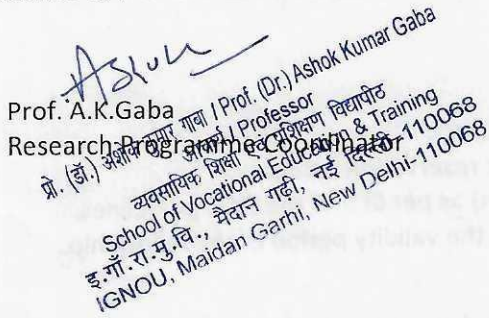 Ashok
Prof. A.K.Gaba
Research Programme Coordinator
प्रो. (डॉ.) अशोक कुमार गाबा / Prof. (Dr.) Ashok Kumar Gaba
आचार्य / Professor
व्यवसायिक शिक्षा एवं प्रशिक्षण विद्यापीठ
School of Vocational Education & Training
इ.गाँ.रा.मु.वि., मैदान गढ़ी, नई दिल्ली-110068
IGNOU, Maidan Garhi, New Delhi-110068